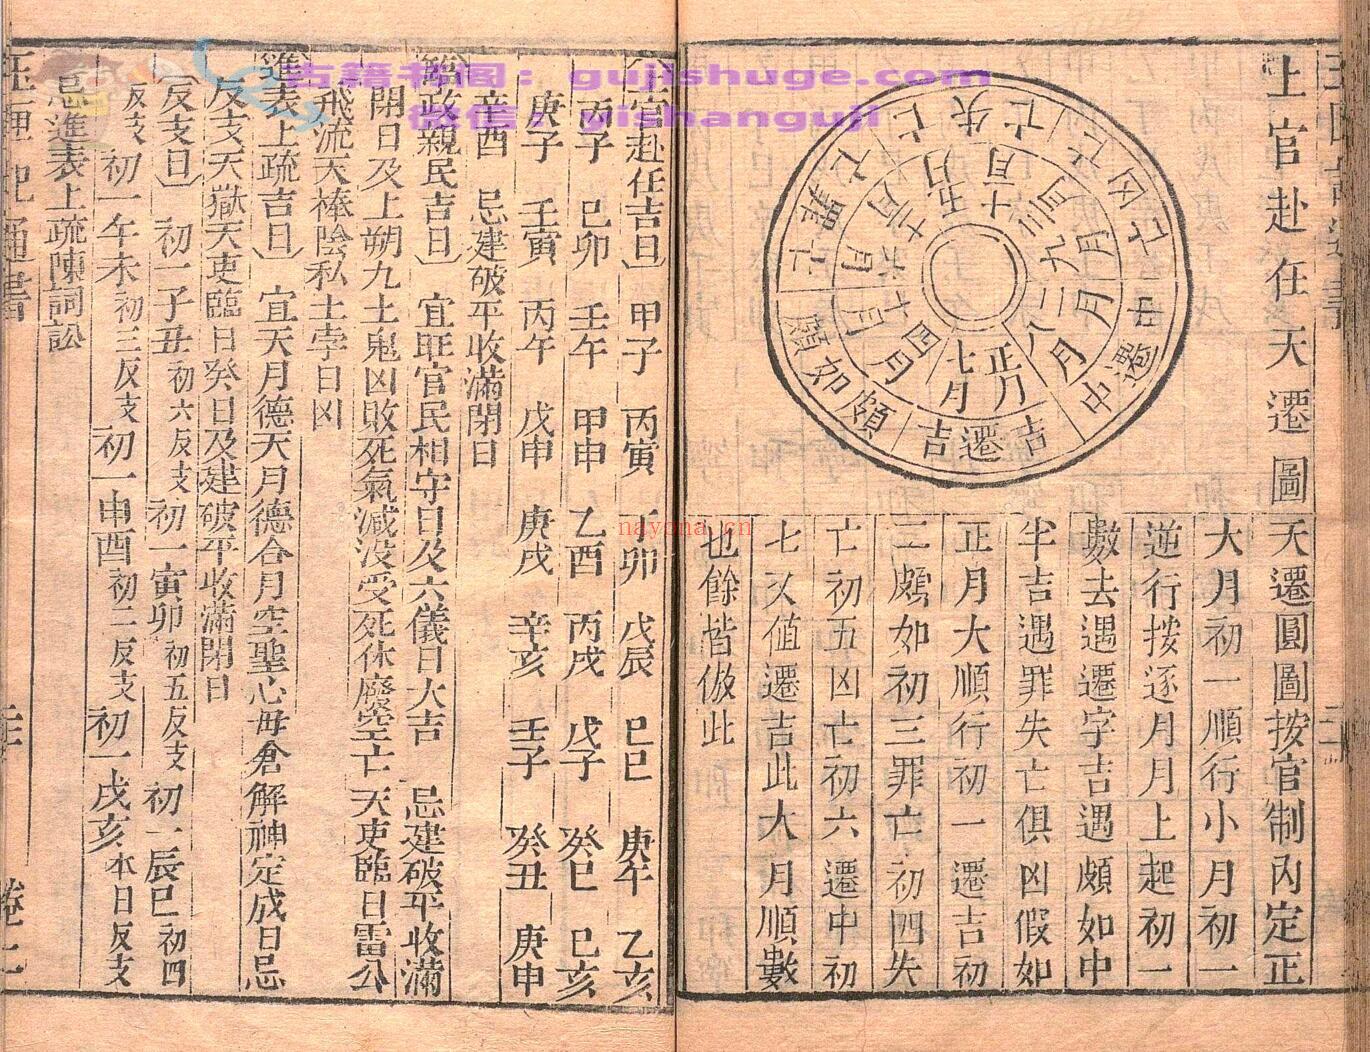 上官赴任天遷圖
吉遷吉
中遷中
凶亡
失亡
罪亡
頗如頗
正月
七月
八月
二月
九月
三月
十月
四月
五月
六月
天遷圓圖按官制內定正
大月初一順行小月初一
逆行按逐月月上起初一
數去遇遷字吉遇頗如中
半吉遇罪失亡俱凶假如
正月大順行初一遷吉初
二頗如初三罪亡初四失
亡初五凶亡初六遷中初
七又值遷吉此大月順數
也餘皆倣此
上官赴任吉日 甲子 丙寅 丁卯 戊辰 己巳 庚午 乙亥
丙子 己卯 壬午 甲申 乙酉 丙戌 戊子 癸巳 己亥
庚子 壬寅 丙午 戊申 庚戌 辛亥 壬子 癸丑 庚申
辛酉 忌建破平收滿閉日
臨政親民吉日 宜旺官民相守日及六儀日大吉 忌建破平收滿
閉日及上朔九土鬼凶敗死氣滅沒受死休廢空亡天吏臨日雷公
飛流天棒陰私土孛日凶
進表上疏吉日 宜天月德天月德合月空聖心母倉解神定成日忌
反支天獄天吏臨日癸日及建破平收滿閉日
反支日 初一子丑初六反支 初一寅卯初五反支 初一辰巳初四
反支 初一午未初三反支 初一申酉初二反支 初一戌亥本日反支
忌進表上疏陳詞訟
古籍书阁：gujishuge.com
微信：yishanguji
nayona.cn